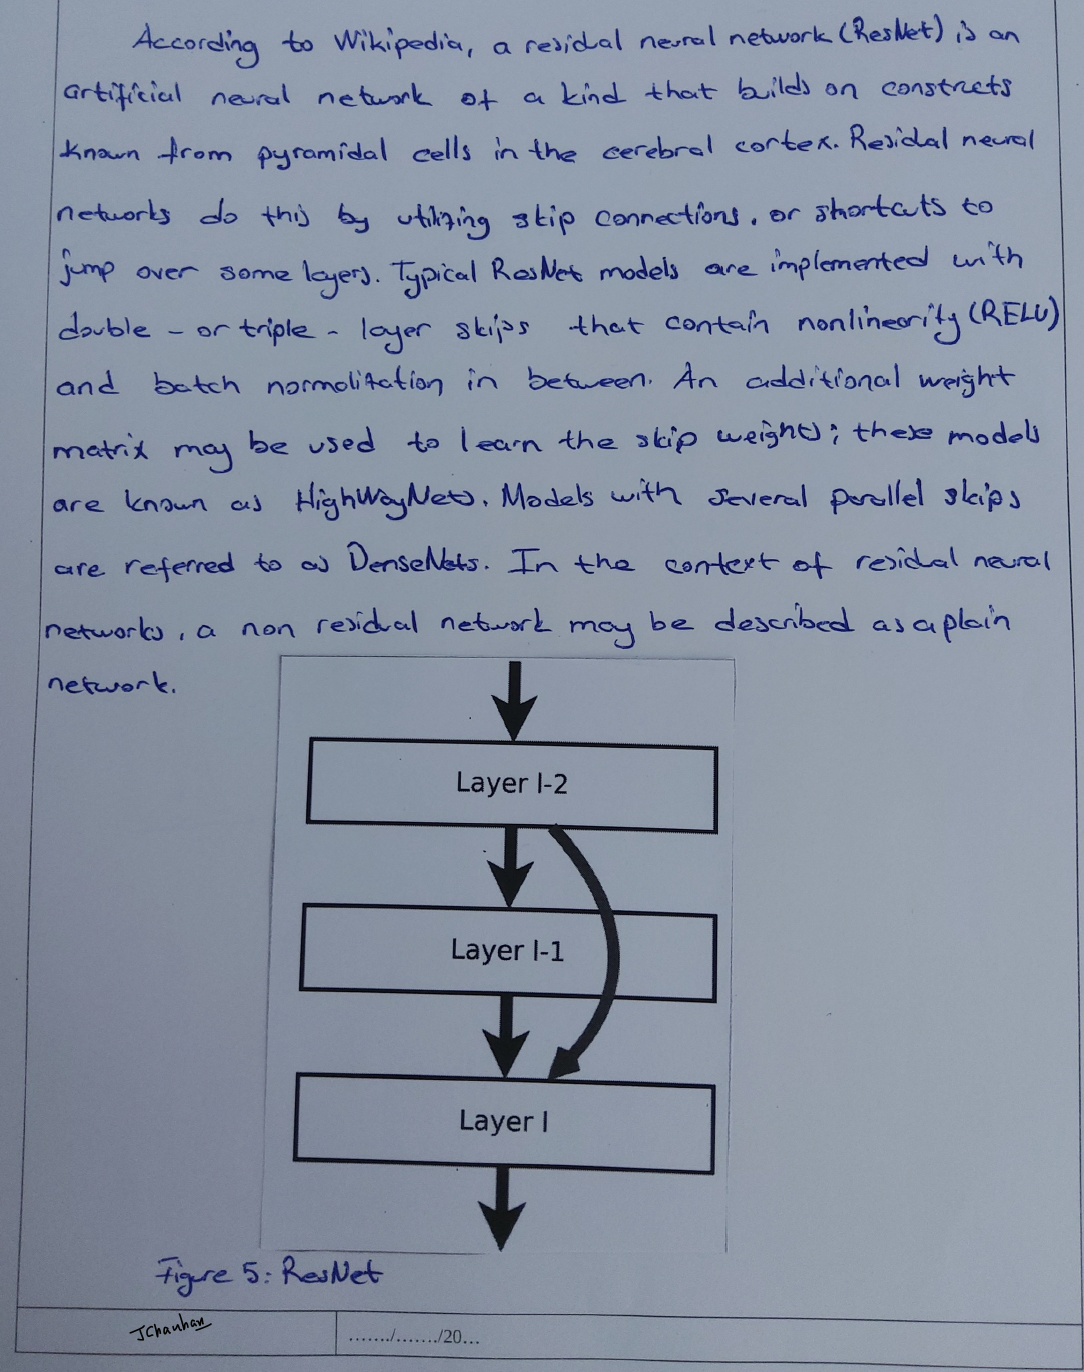 According to Wikipedia, a residal neural network (ResNet) is an
artificial neural network of a kind that builds on constrcts
known from pyramidal cells in the cerebral cortex. Residal neural
networks do this by utilizing skip connections, or shortcuts to
jump over some layers. Typical ResNet models are implemented with
double - or triple - layer skips that contain nonlinearity (RELU)
and batch normalization in between. An additional weight
matrix may be used to learn the skip weights; these models
are known as HighWayNets. Models with several parallel skips
are referred to as DenseNets. In the context of residal neural
networks, a non residual network may be described as a plain
network.
Layer l-2
Layer l-1
Layer l
Figure 5: ResNet
JChauhan
......./......./20...